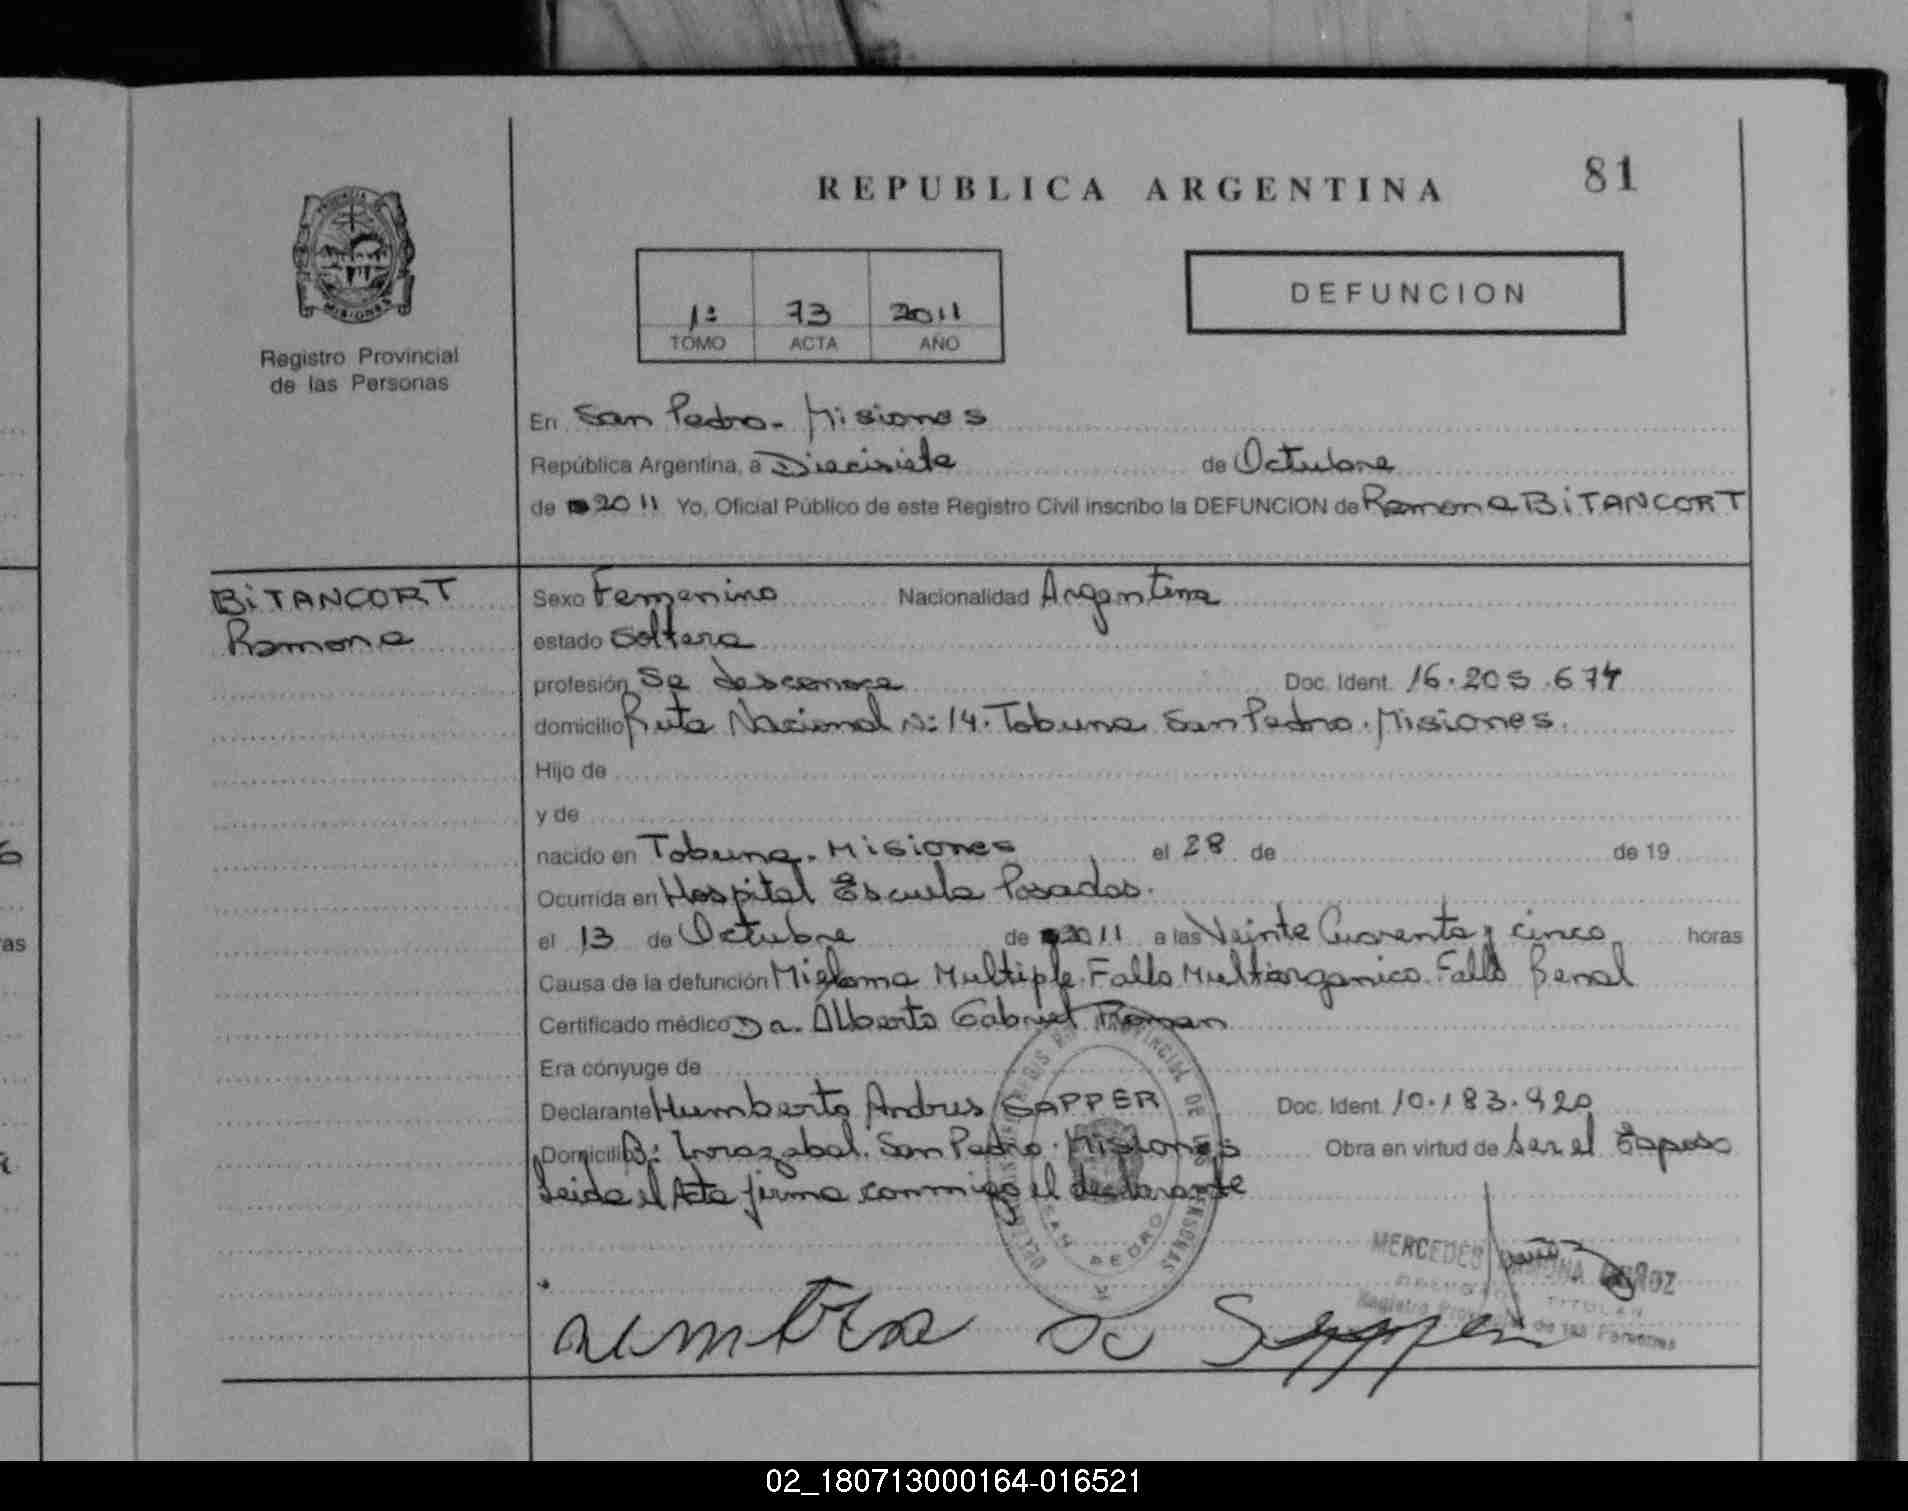 81
REPUBLICA ARGENTINA
DEFUNCION
PROVINCIA DE MISIONES
Registro Provincial
de las Personas
1º 73 2011
TOMO ACTA AÑO
En San Pedro. Misiones
República Argentina, a Diecisiete de Octubre
de 2011 Yo, Oficial Público de este Registro Civil inscribo la DEFUNCION de Ramona BiTANCORT
BiTANCORT
Ramona
Sexo Femenino Nacionalidad Argentina
estado Soltera
profesión Se desconoce Doc. Ident. 16.205.674
domicilio Ruta Nacional Nº 14. Tobuna San Pedro. Misiones.
Hijo de
y de
nacido en Tobuna. Misiones el 28 de de 19
Ocurrida en Hospital Escuela Posadas.
el 13 de Octubre de 2011 a las Veinte Cuarenta y cinco horas
Causa de la defunción Mieloma Multiple. Fallo Multiorganico. Fallo Renal
Certificado médico Dr. Alberto Gabriel Roman
Era cónyuge de
Declarante Humberto Andres SAPPER Doc. Ident. 10.183.920
Domicilio Bº Irrazabal. San Pedro. Misiones Obra en virtud de ser el Esposo
Leida el Acta firma conmigo el declarante
SAN PEDRO
MERCEDES RAMONA MUÑOZ
TITULAR
Registro Provincial de las Personas
02_180713000164-016521